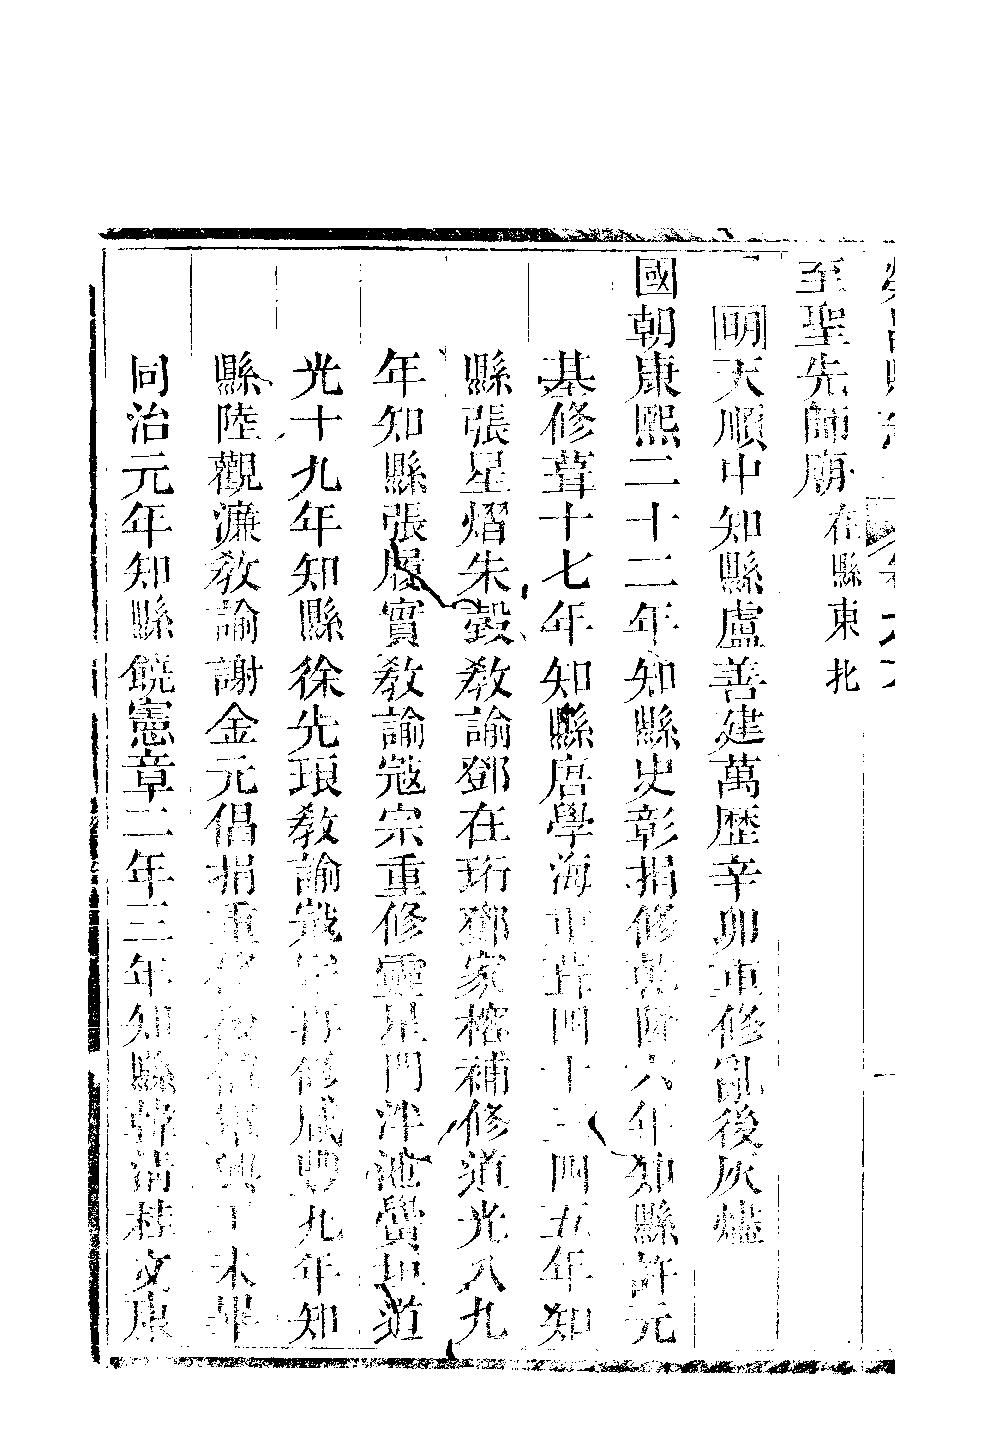 至聖先師廟在縣東北
明天順中知縣盧善建萬歷辛卯重修亂後灰燼
國朝康熙二十二年知縣史彰捐修乾隆六年知縣許元
基修葺十七年知縣唐學海重葺四十三四五年知
縣張星熠朱毅教諭鄧在珩鄧家榕補修道光八九
年知縣張履實教諭寇宗重修靈星門泮池黌垣道
光十九年知縣徐先琅教諭戴 再修咸豐九年知
縣陸觀濂教諭謝金元倡捐重修 興工未畢
同治元年知縣饒憲章二年三年知縣韓清桂文康